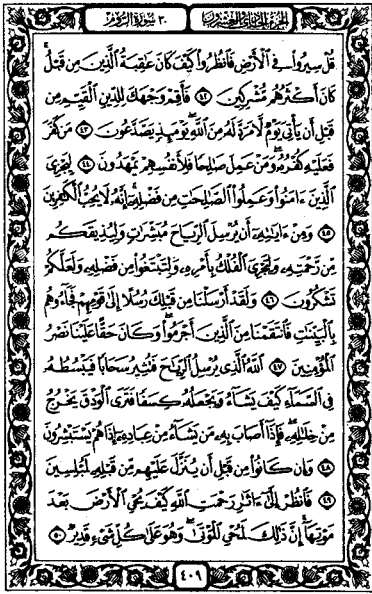 الجزء الحادي والعشرون ٣٠ سورة الروم
قُلْ سِيرُوا۟ فِى ٱلْأَرْضِ فَٱنظُرُوا۟ كَيْفَ كَانَ عَـٰقِبَةُ ٱلَّذِينَ مِن قَبْلُ ۚ
كَانَ أَكْثَرُهُم مُّشْرِكِينَ ٤٢ فَأَقِمْ وَجْهَكَ لِلدِّينِ ٱلْقَيِّمِ مِن
قَبْلِ أَن يَأْتِىَ يَوْمٌ لَّا مَرَدَّ لَهُۥ مِنَ ٱللَّهِ ۖ يَوْمَئِذٍ يَصَّدَّعُونَ ٤٣ مَن كَفَرَ
فَعَلَيْهِ كُفْرُهُۥ ۖ وَمَنْ عَمِلَ صَـٰلِحًا فَلِأَنفُسِهِمْ يَمْهَدُونَ ٤٤ لِيَجْزِىَ
ٱلَّذِينَ ءَامَنُوا۟ وَعَمِلُوا۟ ٱلصَّـٰلِحَـٰتِ مِن فَضْلِهِۦٓ ۚ إِنَّهُۥ لَا يُحِبُّ ٱلْكَـٰفِرِينَ
٤٥ وَمِنْ ءَايَـٰتِهِۦٓ أَن يُرْسِلَ ٱلرِّيَاحَ مُبَشِّرَٰتٍ وَلِيُذِيقَكُم
مِّن رَّحْمَتِهِۦ وَلِتَجْرِىَ ٱلْفُلْكُ بِأَمْرِهِۦ وَلِتَبْتَغُوا۟ مِن فَضْلِهِۦ وَلَعَلَّكُمْ
تَشْكُرُونَ ٤٦ وَلَقَدْ أَرْسَلْنَا مِن قَبْلِكَ رُسُلًا إِلَىٰ قَوْمِهِمْ فَجَآءُوهُم
بِٱلْبَيِّنَـٰتِ فَٱنتَقَمْنَا مِنَ ٱلَّذِينَ أَجْرَمُوا۟ ۖ وَكَانَ حَقًّا عَلَيْنَا نَصْرُ
ٱلْمُؤْمِنِينَ ٤٧ ٱللَّهُ ٱلَّذِى يُرْسِلُ ٱلرِّيَـٰحَ فَتُثِيرُ سَحَابًا فَيَبْسُطُهُۥ
فِى ٱلسَّمَآءِ كَيْفَ يَشَآءُ وَيَجْعَلُهُۥ كِسَفًا فَتَرَى ٱلْوَدْقَ يَخْرُجُ
مِنْ خِلَـٰلِهِۦ ۖ فَإِذَآ أَصَابَ بِهِۦ مَن يَشَآءُ مِنْ عِبَادِهِۦٓ إِذَا هُمْ يَسْتَبْشِرُونَ
٤٨ وَإِن كَانُوا۟ مِن قَبْلِ أَن يُنَزَّلَ عَلَيْهِم مِّن قَبْلِهِۦ لَمُبْلِسِينَ
٤٩ فَٱنظُرْ إِلَىٰٓ ءَاثَـٰرِ رَحْمَتِ ٱللَّهِ كَيْفَ يُحْىِ ٱلْأَرْضَ بَعْدَ
مَوْتِهَآ ۚ إِنَّ ذَٰلِكَ لَمُحْىِ ٱلْمَوْتَىٰ ۖ وَهُوَ عَلَىٰ كُلِّ شَىْءٍ قَدِيرٌ ٥٠
٤٠٩